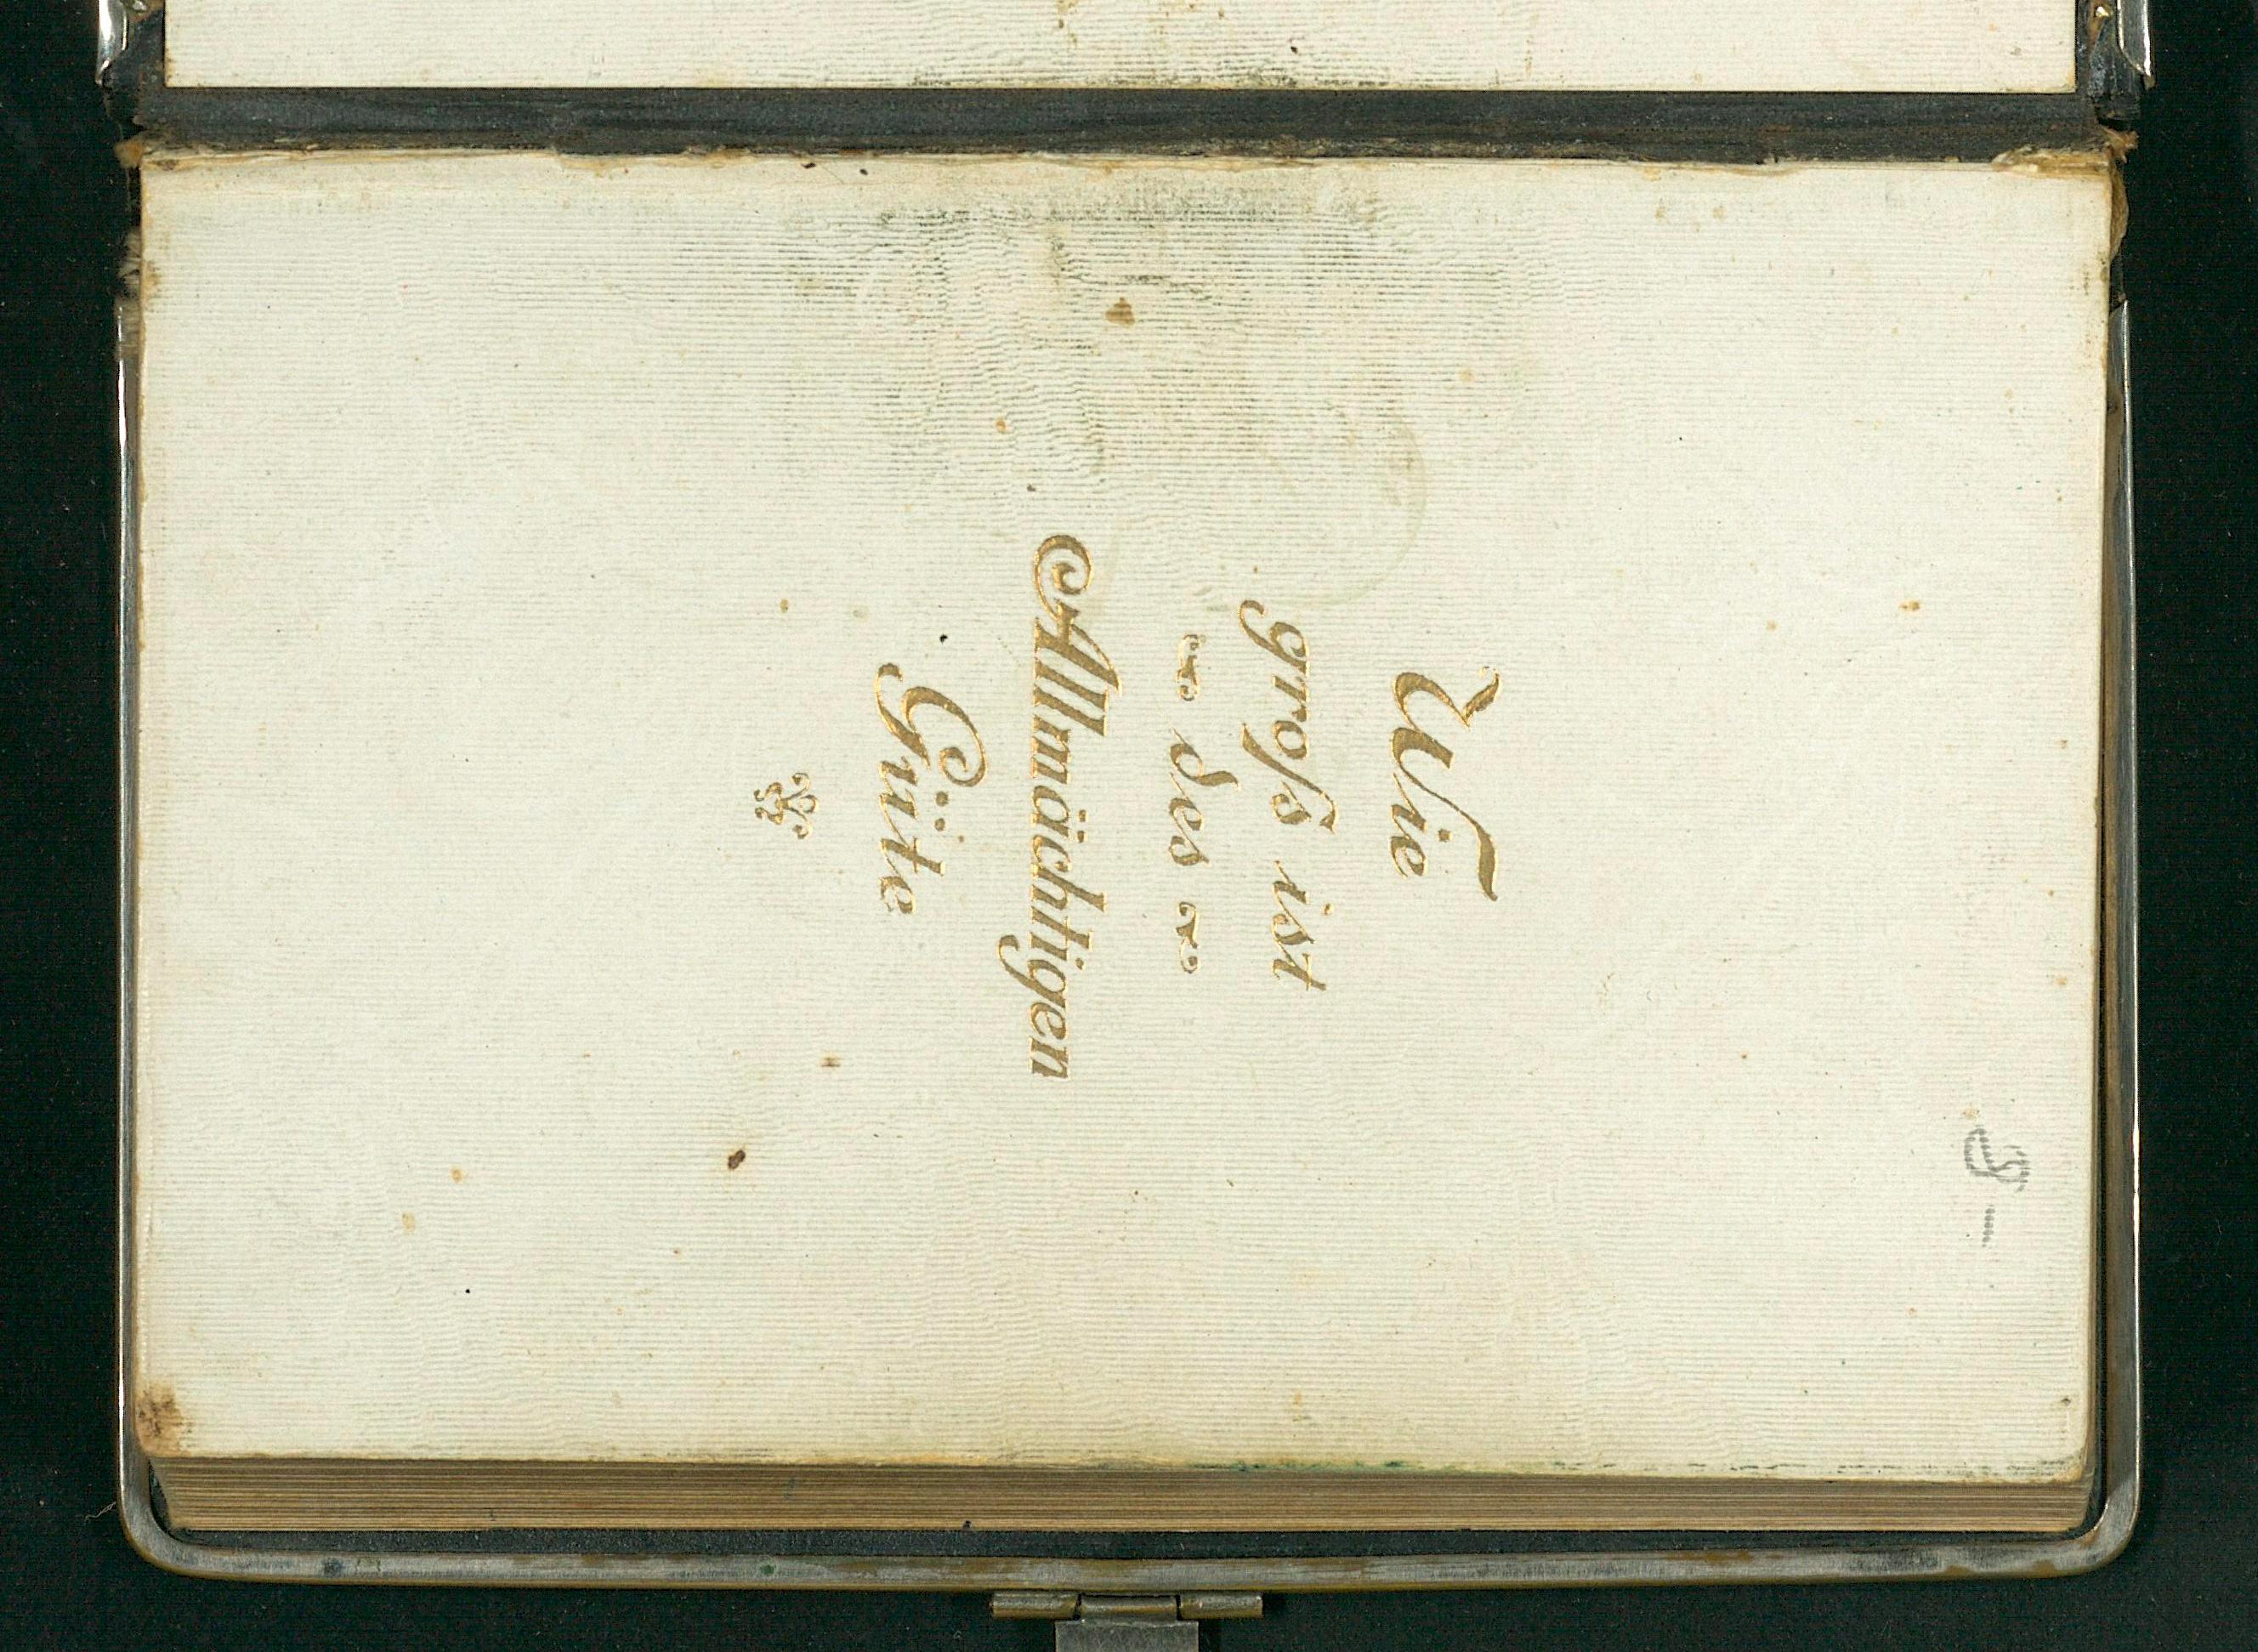 Wie
groſs ist
des
Allmächtigen
Güte